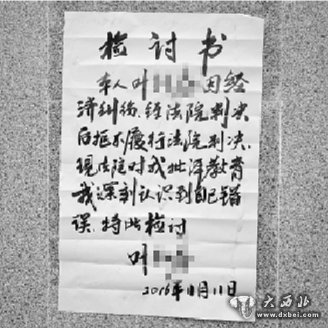 检讨书
本人叶因经
济纠纷,经法院判决
后拒不履行法院判决,
现法院对我批评教育
我深刻认识到自己错
误,特此检讨
叶
2016年11月11日
大西北
www.dxbei.com